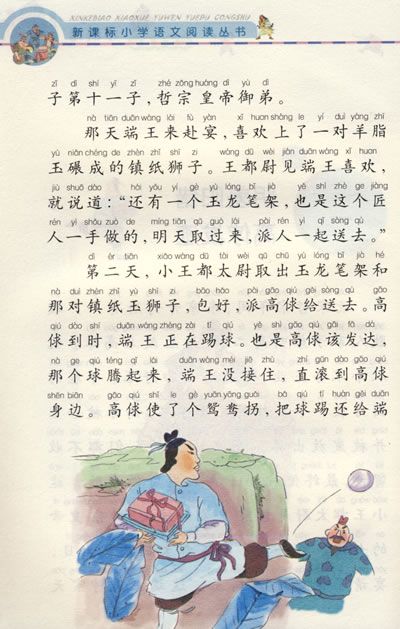 XINKEBIAO XIAOXUE YUWEN YUEDU CONGSHU
新课标小学语文阅读丛书
zǐ dì shí yī zǐ zhé zōng huáng dì yù dì
子第十一子，哲宗皇帝御弟。
nà tiān duān wáng lái fù yàn xǐ huan shàng le yí duì yáng zhī
那天端王来赴宴，喜欢上了一对羊脂
yù niǎn chéng de zhèn zhǐ shī zi wáng dū wèi jiàn duān wáng xǐ huan
玉碾成的镇纸狮子。王都尉见端王喜欢，
jiù shuō dào hái yǒu yí gè yù lóng bǐ jià yě shì zhè ge jiàng
就说道：“还有一个玉龙笔架，也是这个匠
rén yì shǒu zuò de míng tiān qǔ guò lái pài rén yì qǐ sòng qù
人一手做的，明天取过来，派人一起送去。”
dì èr tiān xiǎo wáng dū tài wèi qǔ chū yù lóng bǐ jià hé
第二天，小王都太尉取出玉龙笔架和
nà duì zhèn zhǐ yù shī zi bāo hǎo pài gāo qiú gěi sòng qù gāo
那对镇纸玉狮子，包好，派高俅给送去。高
qiú dào shí duān wáng zhèng zài tī qiú yě shì gāo qiú gāi fā dá
俅到时，端王正在踢球。也是高俅该发达，
nà ge qiú téng qǐ lái duān wáng méi jiē zhù zhí gǔn dào gāo qiú
那个球腾起来，端王没接住，直滚到高俅
shēn biān gāo qiú shǐ le gè yuān yāng guǎi bǎ qiú tī huán gěi duān
身边。高俅使了个鸳鸯拐，把球踢还给端